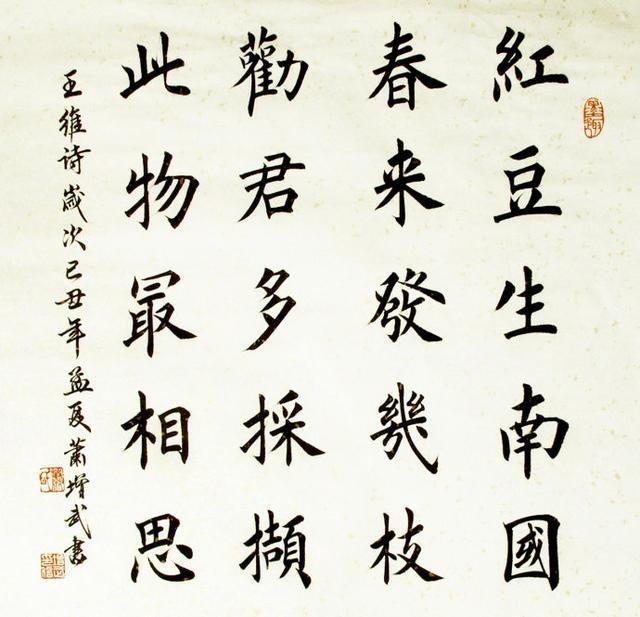 紅豆生南國
春来發幾枝
勸君多採擷
此物最相思
王維诗歲次己丑年孟夏蕭增武書